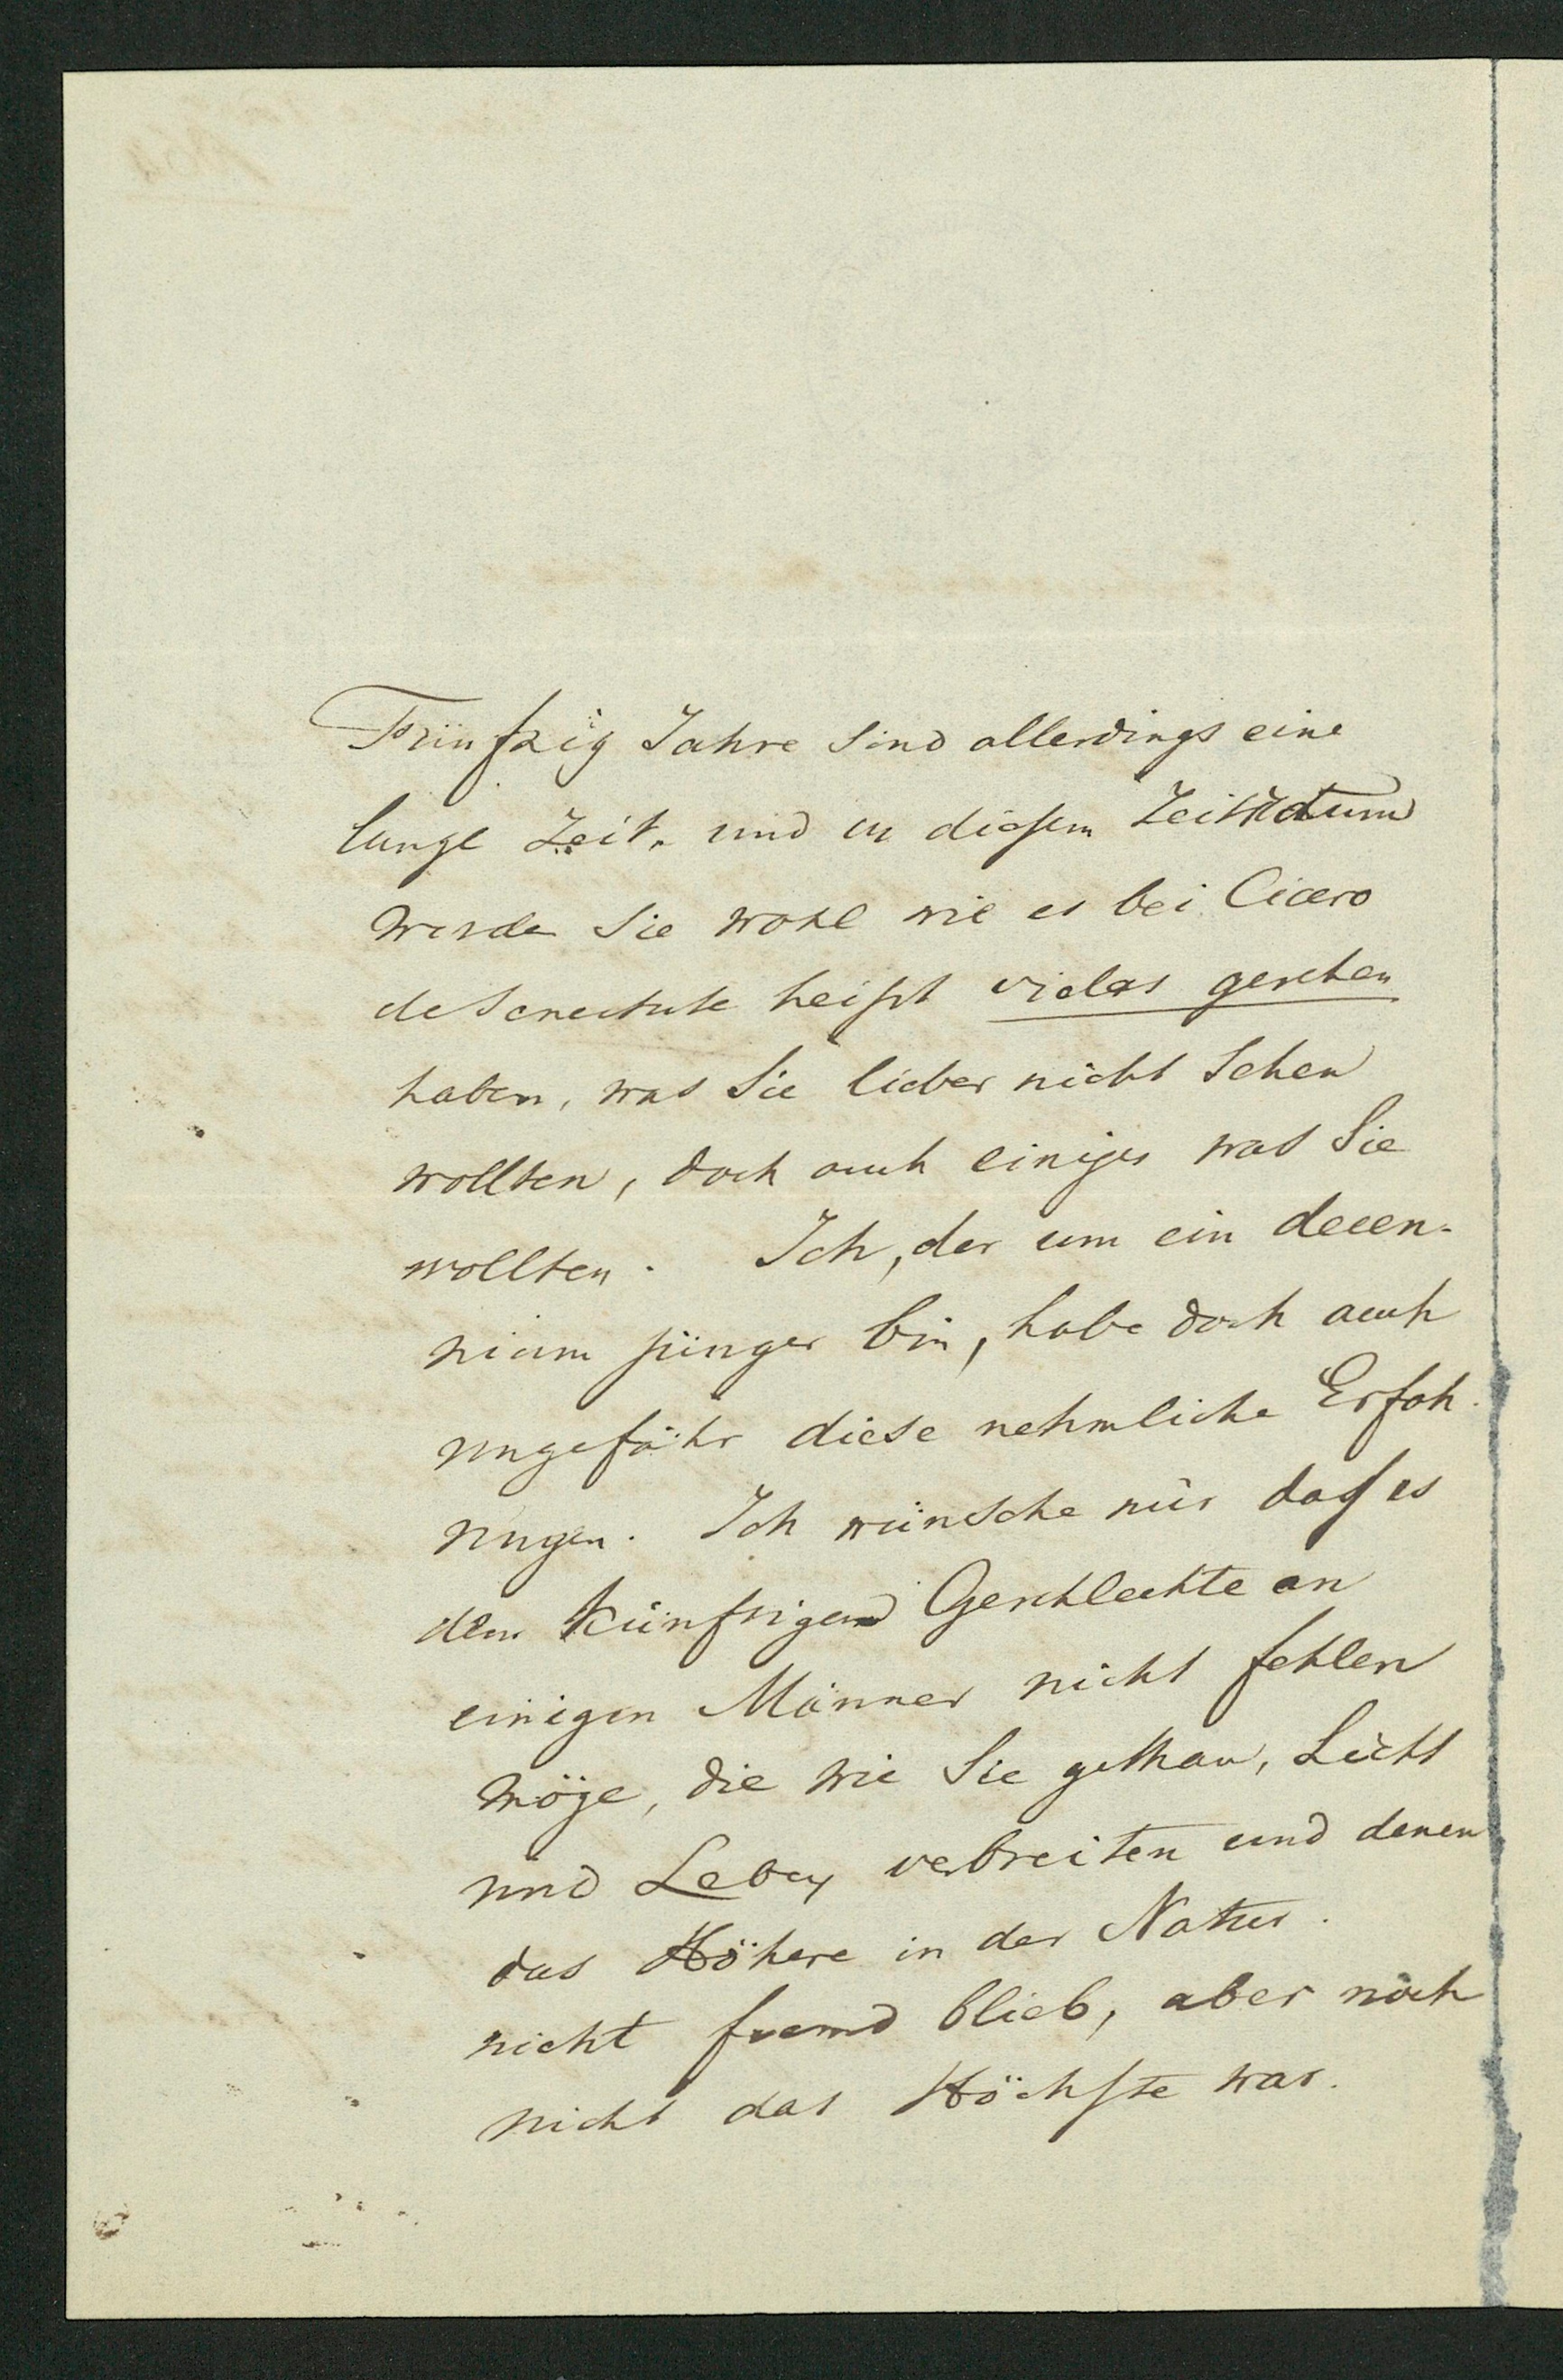 Fünfzig Jahre sind allerdings eine
lange Zeit, und in diesem Zeitraum
werden Sie wohl wie es bei Cicero
de Senectute heißt vieles gesehen
haben, was Sie lieber nicht sehen
wollten, doch auch einiges was Sie
wollten. Ich, der um ein decen-
nium jünger bin, habe doch auch
ungefähr diese nehmliche Erfah-
rungen. Ich wünsche nur daß es
dem künftigen Geschlechte an
einigen Männer nicht fehlen
möge, die wie Sie gethan, Licht
und Leben verbreiten und denen
das Höhere in der Natur
nicht fremd blieb, aber noch
nicht das Höchste war.